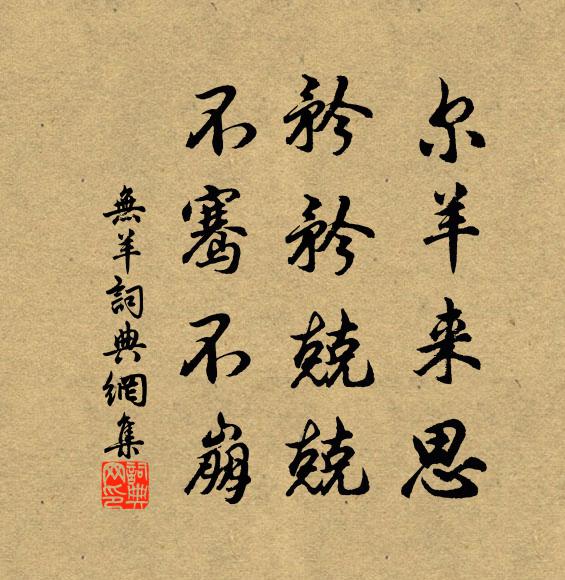 尔羊来思
矜矜兢兢
不骞不崩
無羊詞典網集
詞典网印